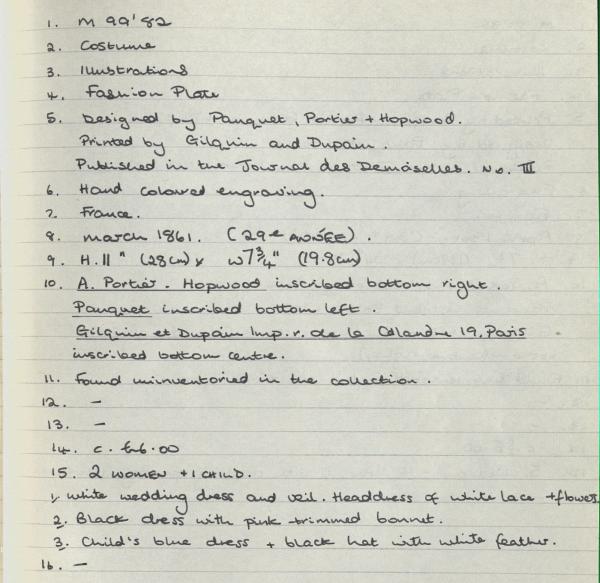 1. M 99'82
2. Costume
3. Illustrations
4. Fashion Plate
5. Designed by Pauquet, Portier + Hopwood.
Printed by Gilquin and Dupain.
Published in the Journal des Demoiselles. No. III
6. Hand coloured engraving.
7. France.
8. March 1861. (29e ANNÉE).
9. H.11" (28cm) x w7¾" (19.8cm)
10. A. Portier. Hopwood inscribed bottom right.
Pauquet inscribed bottom left.
Gilquin et Dupain Imp. r. de la Calandre 19, Paris
inscribed bottom centre.
11. Found uninventoried in the collection.
12. –
13. –
14. c. £6.00
15. 2 WOMEN + 1 CHILD.
1, white wedding dress and veil. Headdress of white lace + flowers
2. Black dress with pink trimmed bonnet.
3. Child's blue dress + black hat with white feather.
16. –